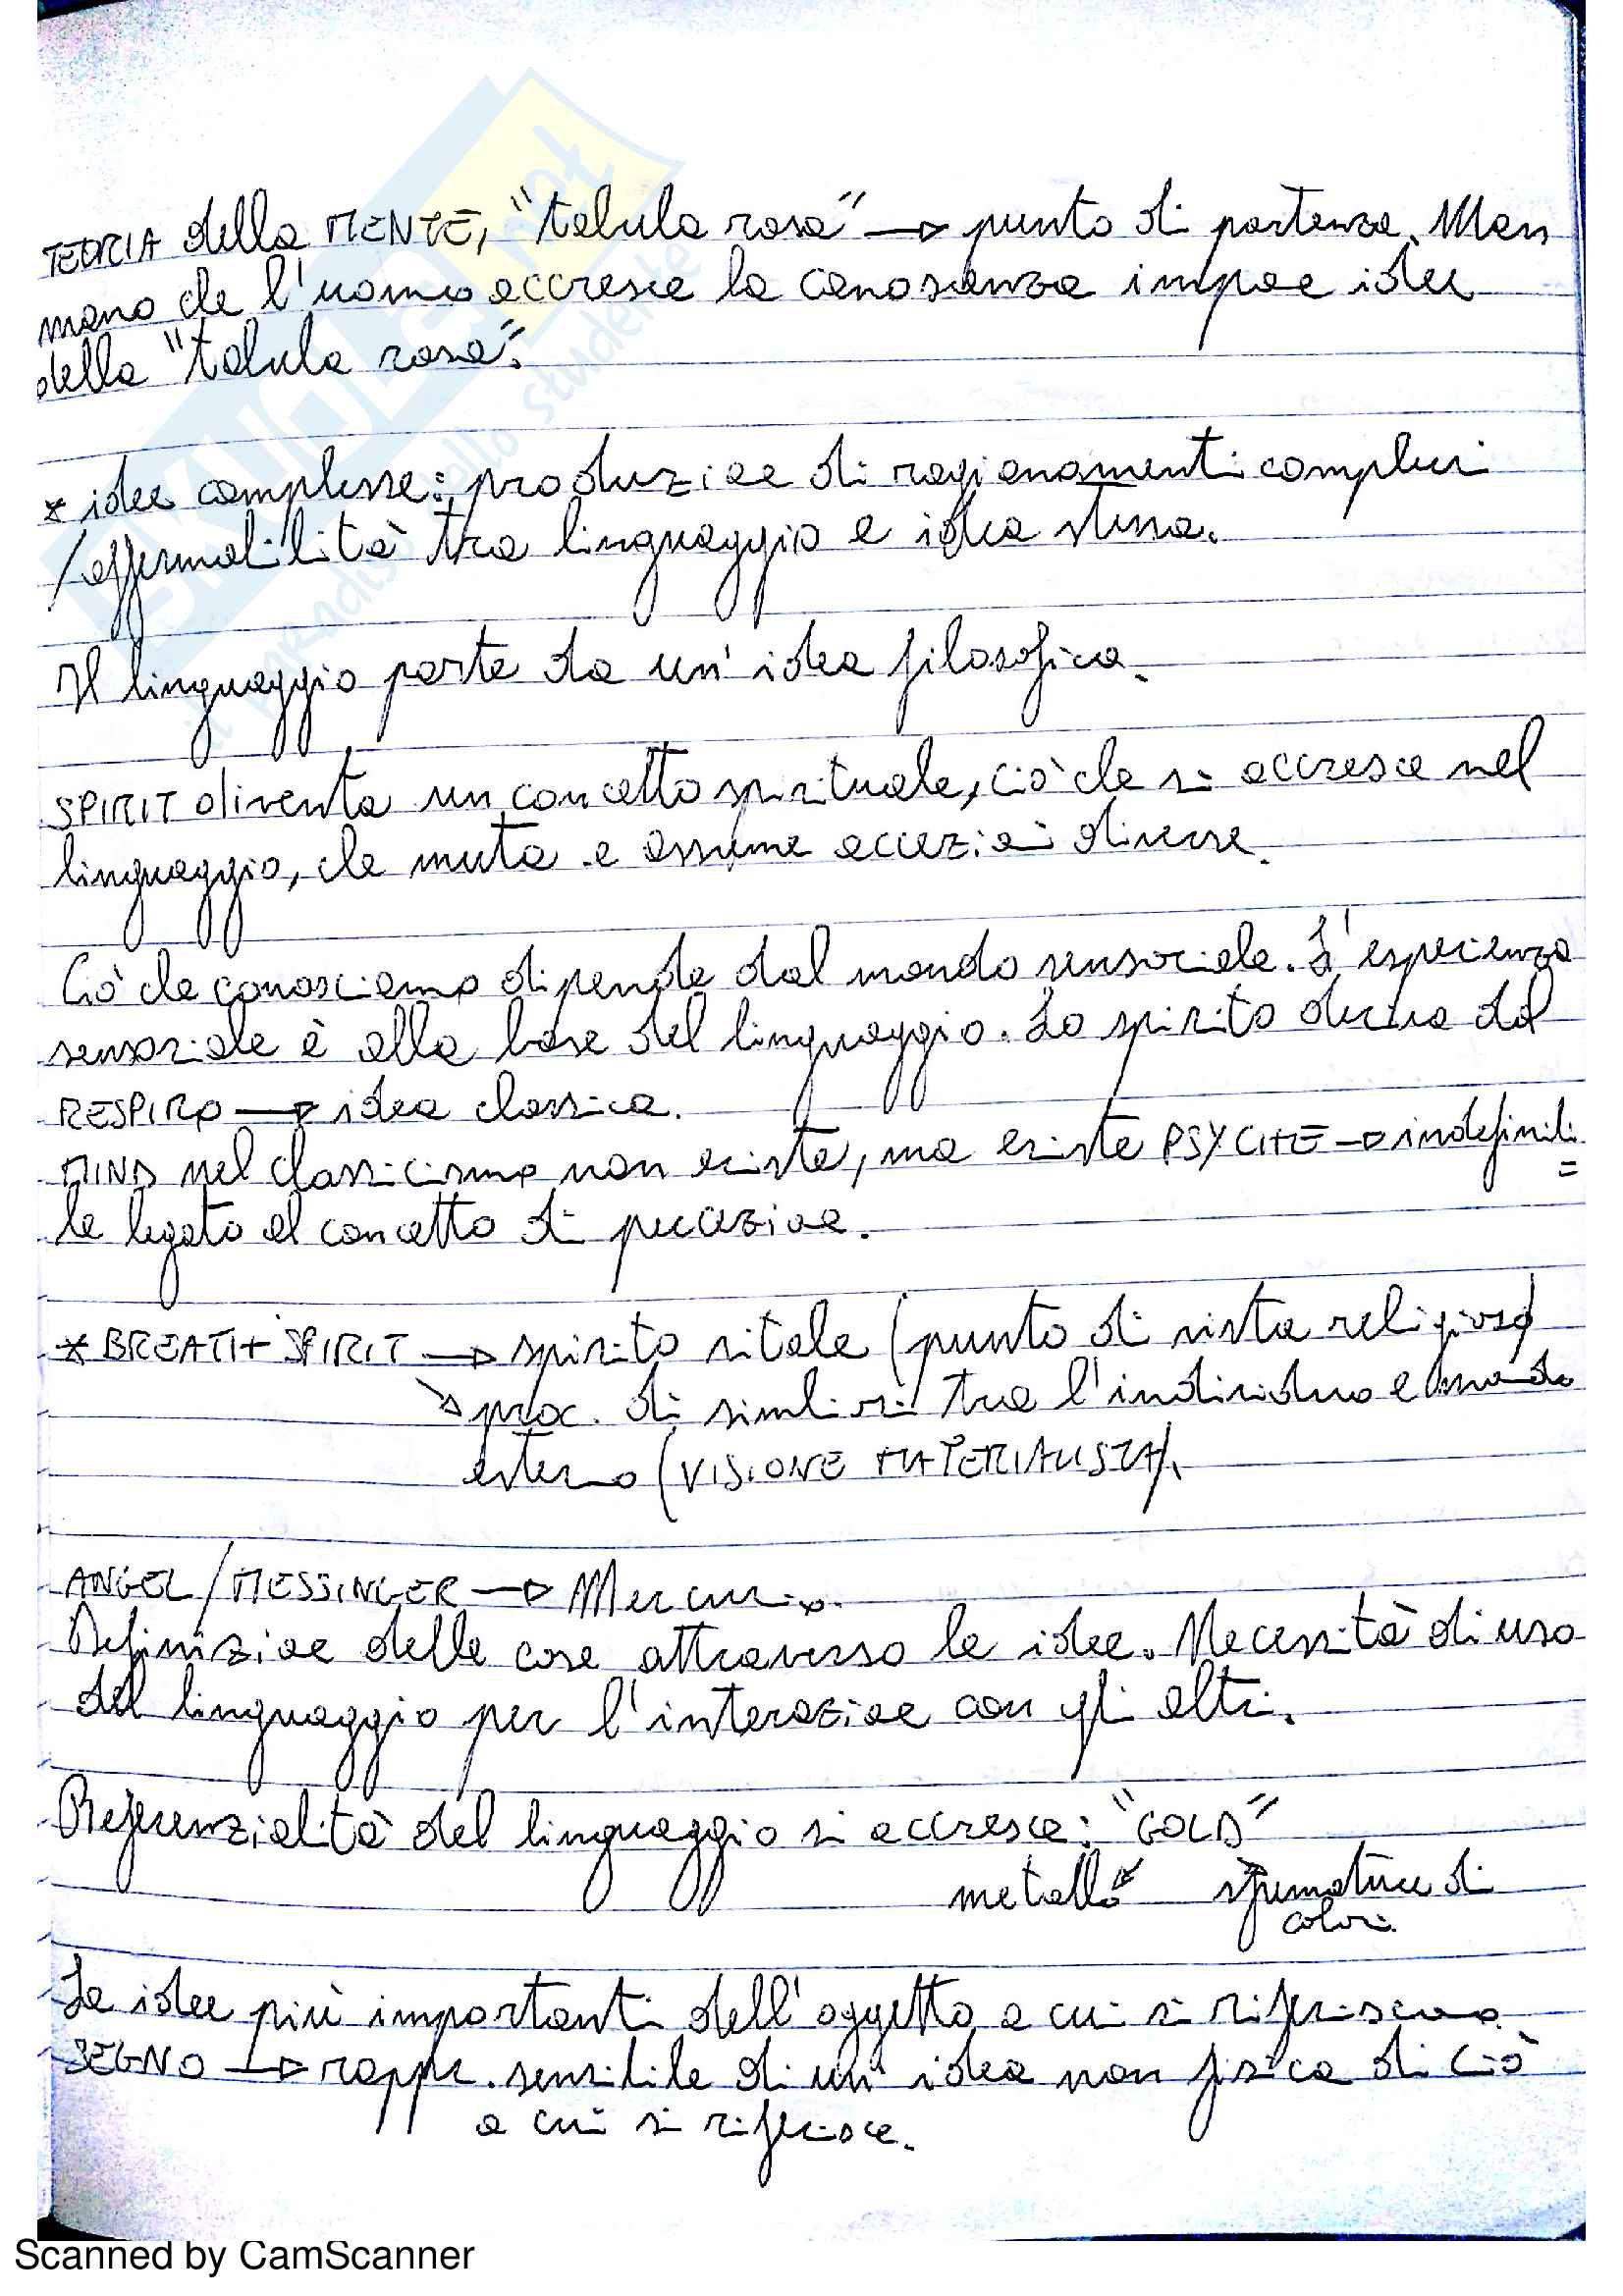 TEORIA della MENTE, "tabula rasa" → punto di partenza. Man
mano che l'uomo accresce la conoscenza impae idee
della "tabula rasa".
* idee complesse: produzioe di ragionamenti complessi
/affermabilità tra linguaggio e idea stessa.
Il linguaggio parte da un'idea filosofica.
SPIRIT diventa un concetto spirituale, ciò che si accresce nel
linguaggio, che muta e assume accezioi diverse.
Ciò che conosciamo dipende dal mondo sensoriale. L'esperienza
sensoriale è alla base del linguaggio. Lo spirito deriva dal
RESPIRO → idea classica.
MIND nel classicismo non esiste, ma esiste PSYCHE → indefinibi=
le legato al concetto di percezioe.
* BREATH SPIRIT → spirito vitale (punto di vista religioso)
↘ proc. di simbiosi tra l'individuo e mondo
esterno (VISIONE MATERIALISTA).
ANGEL/MESSINGER → Mercurio.
Definizioe delle cose attraverso le idee. Necessità di uso
del linguaggio per l'interazioe con gli altri.
Referenzialità del linguaggio si accresce: "GOLD"
metallo sfumature di
colori.
Le idee più importanti dell'oggetto a cui si riferiscono
SEGNO → rappr. sensibile di un'idea non fisica di ciò
a cui si riferisce.
SKUOLA.net
il paradiso dello studente
Scanned by CamScanner